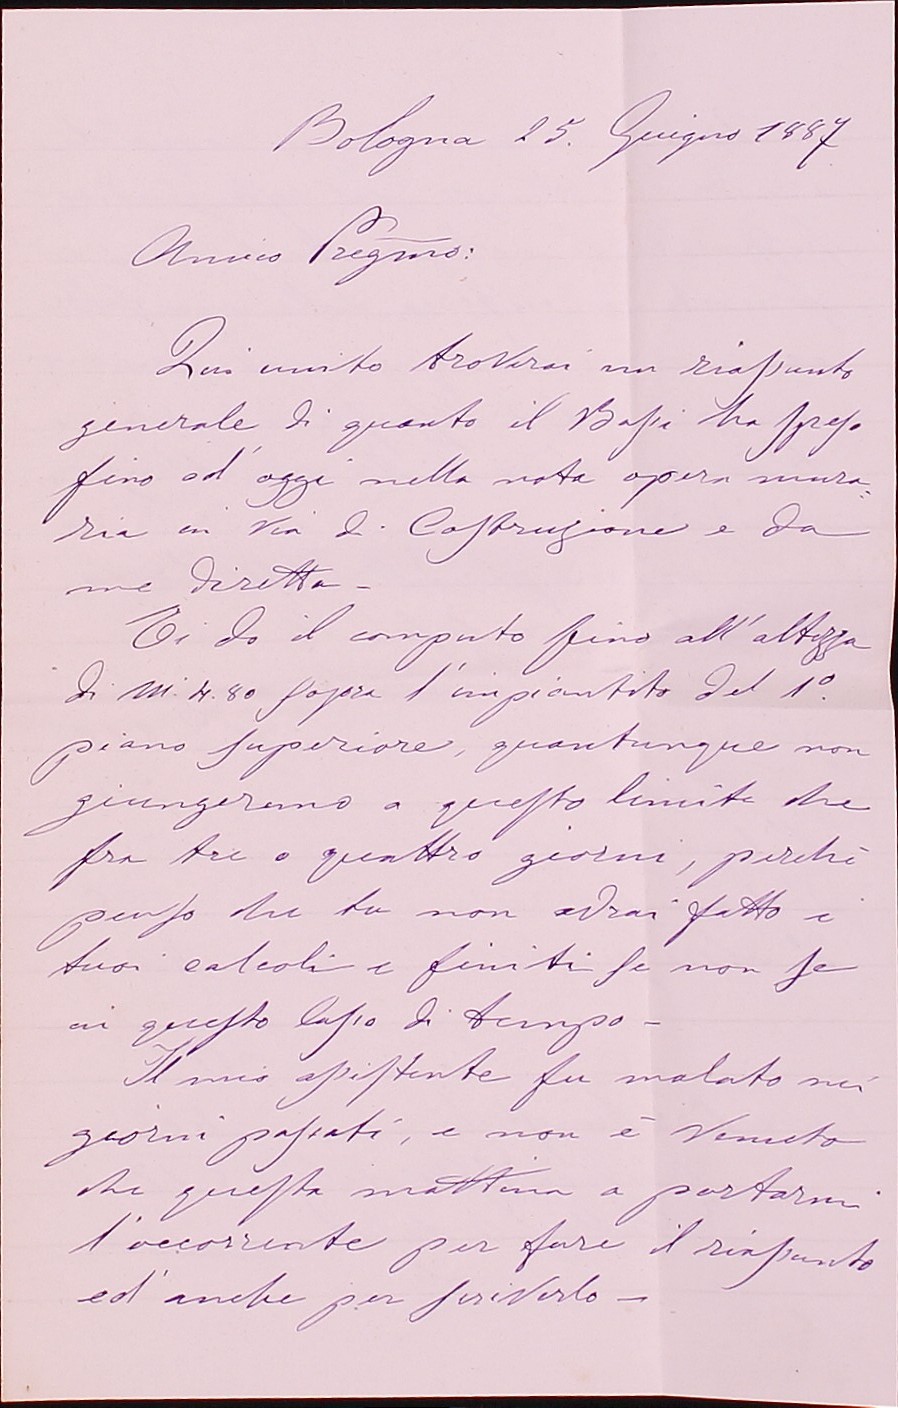 Bologna 25. Giugno 1887
Amico Pregmo:
Qui unito troverai un riassunto
generale di quanto il Bassi ha speso
fino ad' oggi nella nota opera mura=
ria in via di Costruzione e da
me diretta –
Ti do il computo fino all'altezza
di M. 4.80 sopra l'impiantito del 1º.
piano superiore, quantunque non
giungeremo a questo limite che
fra tre o quattro giorni, perchè
penso che tu non avrai fatto i
tuoi calcoli e finiti se non se
in questo lasso di tempo –
Il mio assistente fu malato nei
giorni passati, e non è venuto
che questa mattina a portarmi
l'occorrente per fare il riassunto
ed' anche per scriverlo –